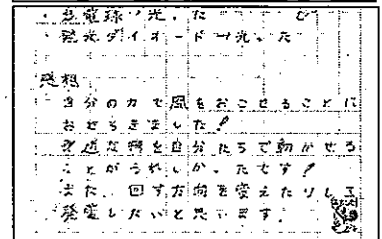 ・豆電球→光った
・発光ダイオード→光った
感想
自分の力で風をおこせることに
おどろきました!
身近な物を自分たちで動かせる
ことがうれしかったです!
また、回す方向を変えたりして
発電したいと思います。